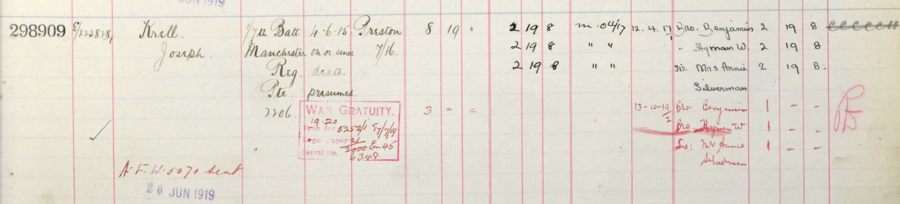 JUN 1919
298909 E/125828/1 Krell 1/7th Batt 4.6.15 Preston 8 19 2 19 8 m. 04/17 12.4.17 Bro. Benjamin 2 19 8
Joseph. Manchester on or since 7/16. 2 19 8 " " " Hyman W. 2 19 8
Reg. death 2 19 8 " " Sis. Mrs Annie 2 19 8
Pte presumed. Silverman
2206. WAR GRATUITY. 3 = = 13-10-19 Bro. Benjamin 1 - -
19-20 Bro. Hyman W 1 - -
Sis: Mrs Annie 1 - -
Silverman
serial no. 6348
A.F.W. 5070 sent
20 JUN 1919